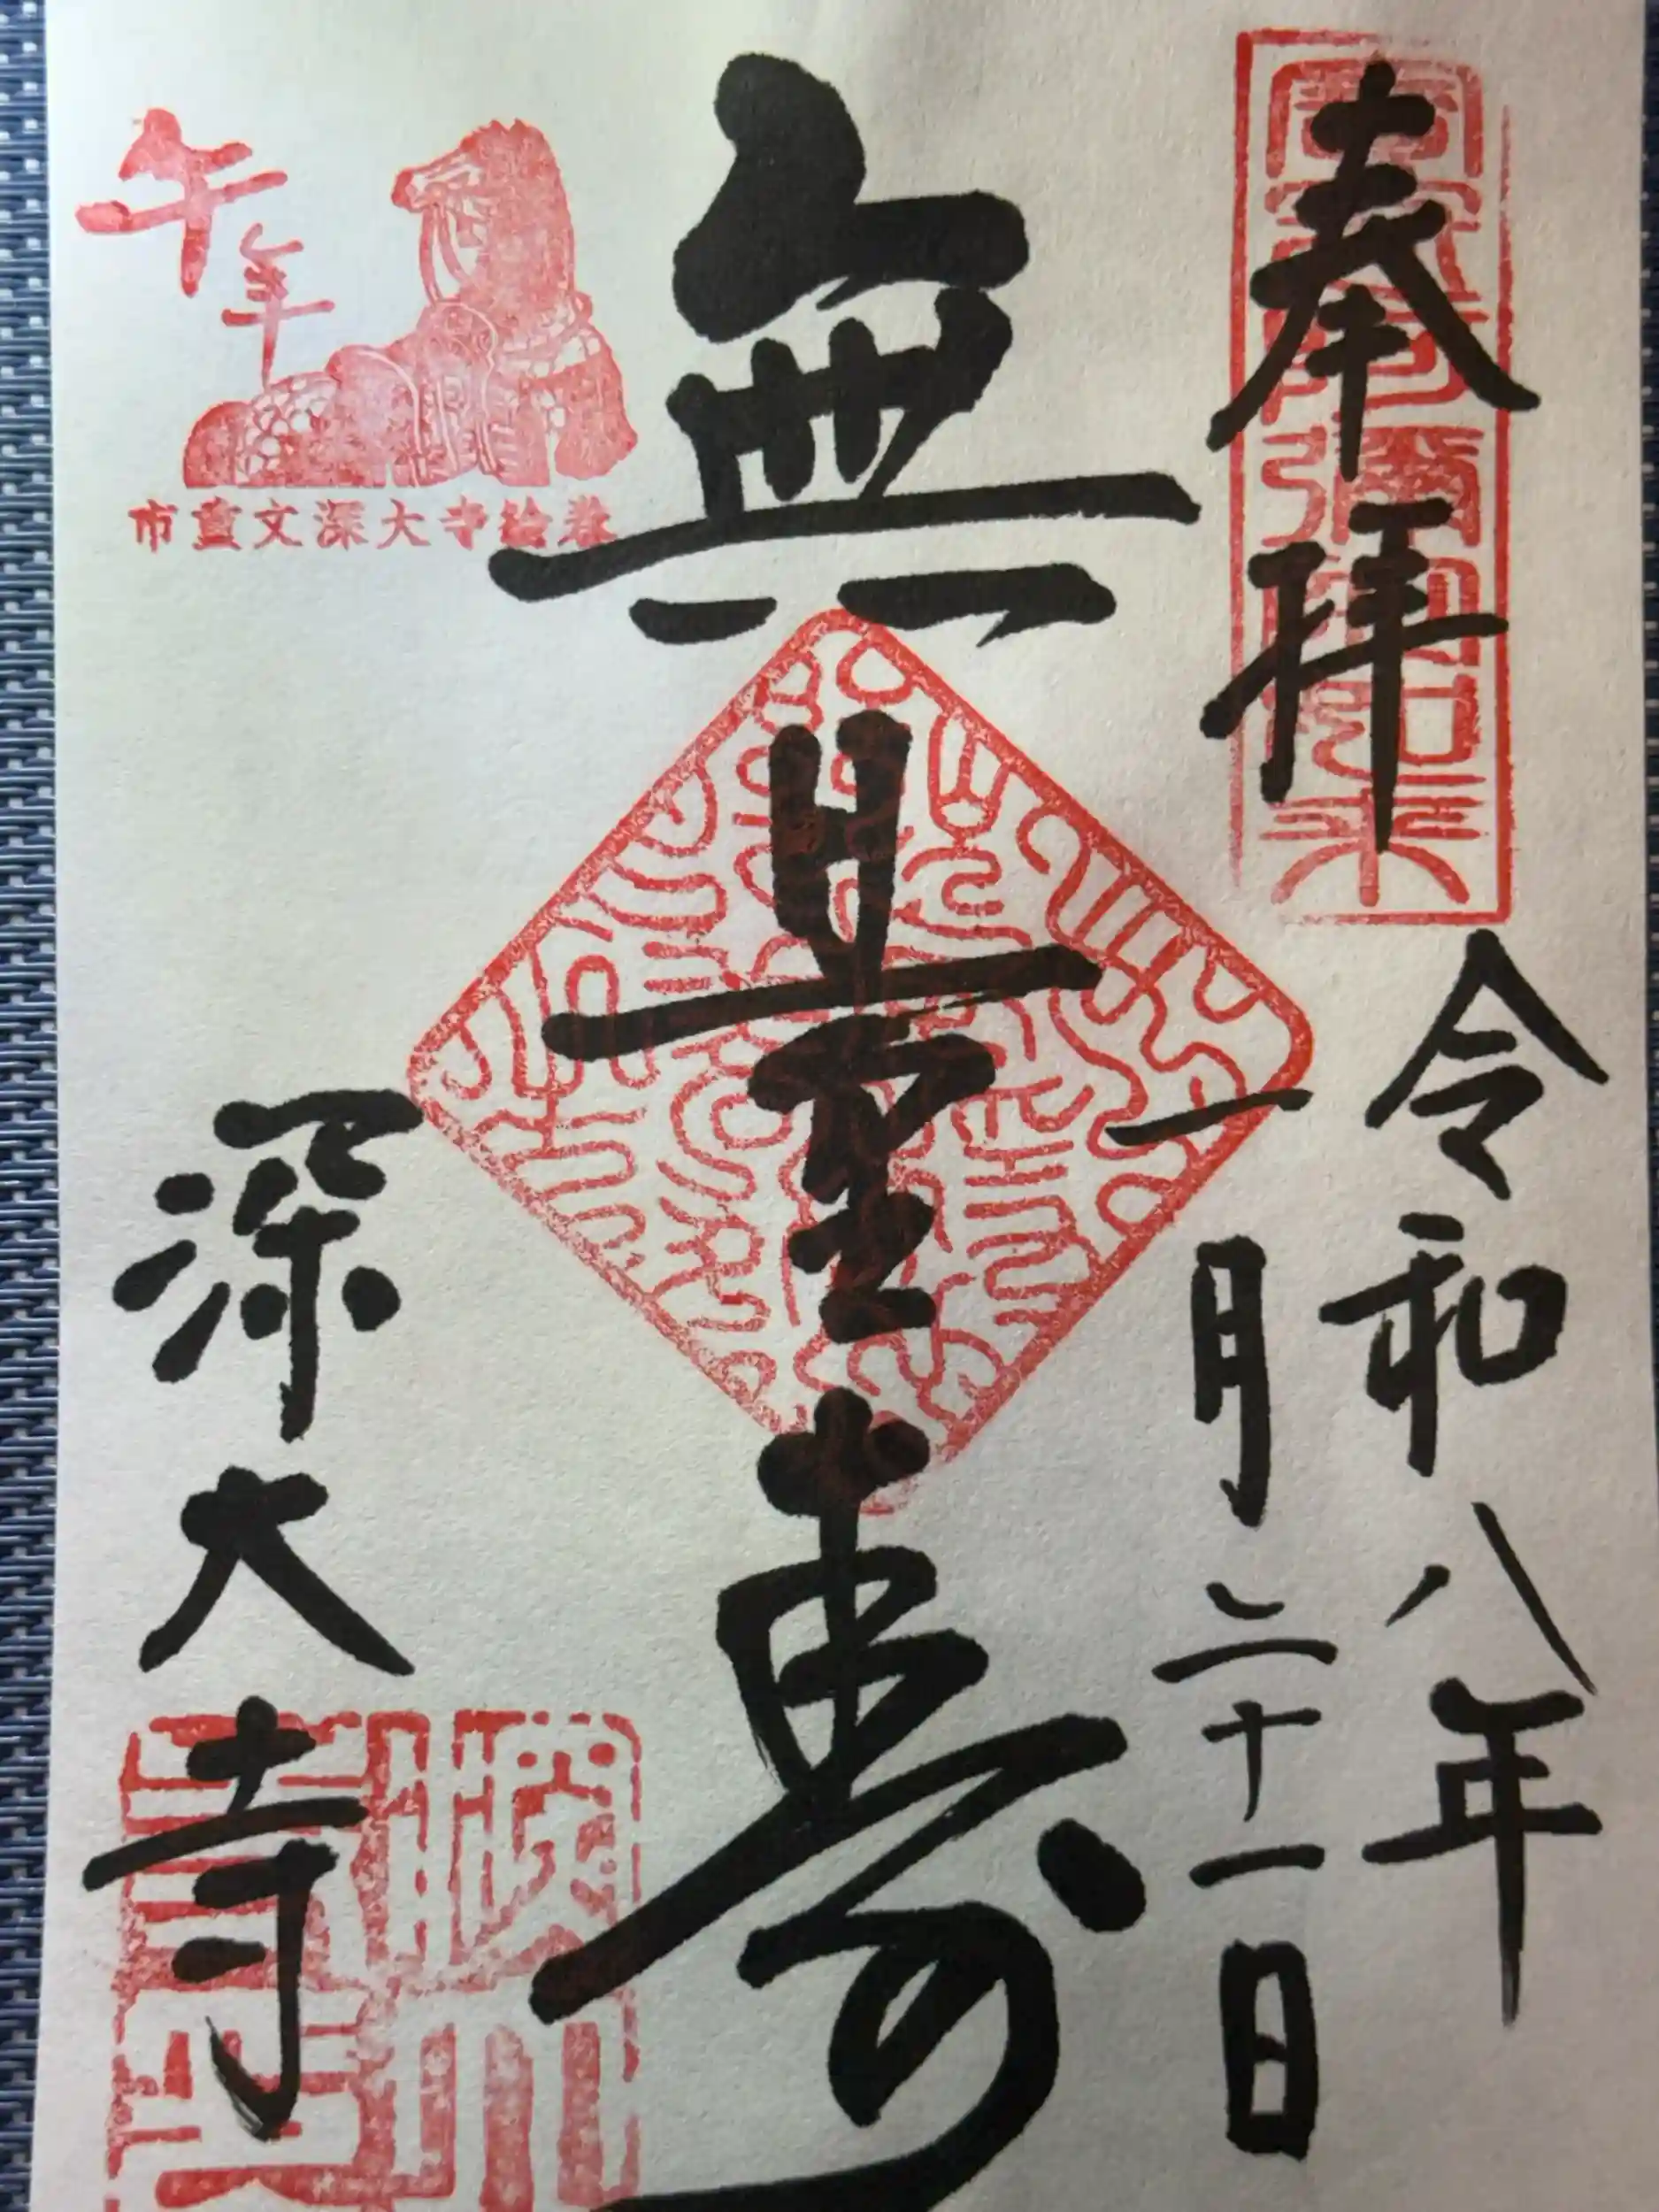 奉拝
令和八年
一月二十一日
無量寿
午年
市重文深大寺絵巻
深大寺